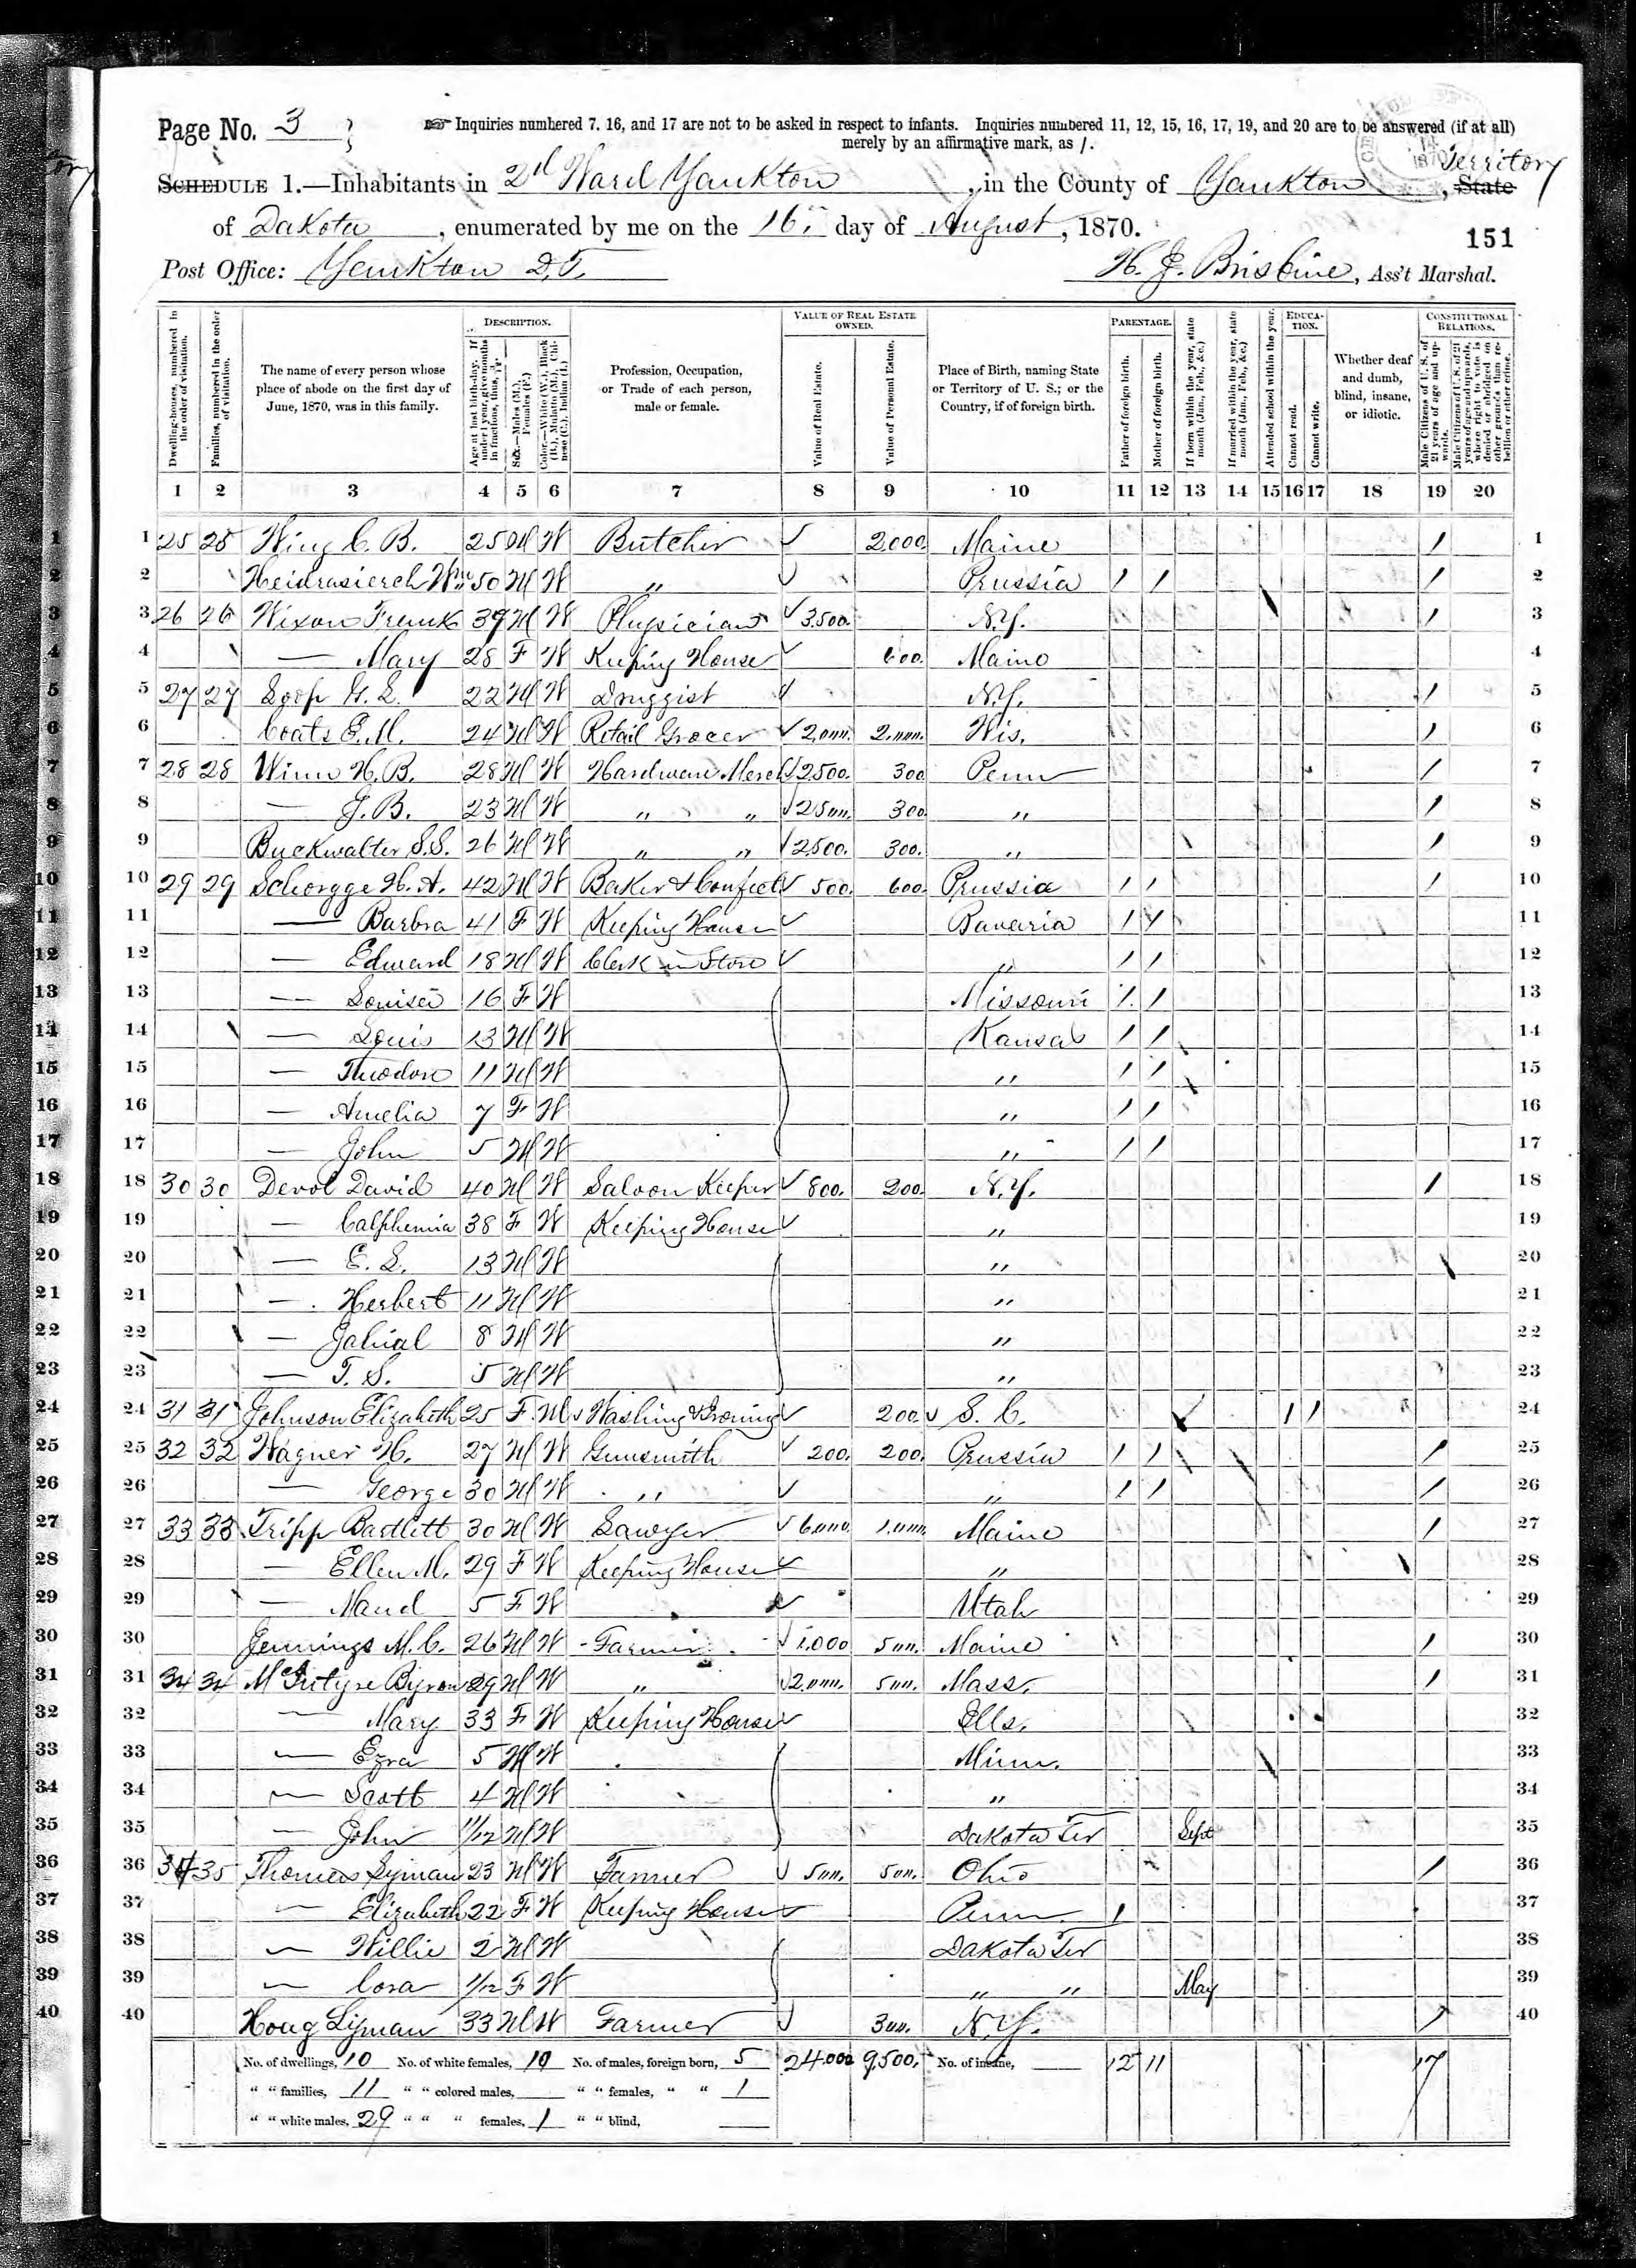 Page No. 3
☞ Inquiries numbered 7, 16, and 17 are not to be asked in respect to infants. Inquiries numbered 11, 12, 15, 16, 17, 19, and 20 are to be answered (if at all)
merely by an affirmative mark, as /.
SCHEDULE 1.—Inhabitants in 2d Ward Yankton, in the County of Yankton, State Territory
of Dakota, enumerated by me on the 16 day of August, 1870.
151
Post Office: Yankton D.T.
H. J. Brisbine, Ass't Marshal.
DESCRIPTION.
VALUE OF REAL ESTATE OWNED.
PARENTAGE.
EDUCATION.
CONSTITUTIONAL RELATIONS.
Dwelling-houses, numbered in the order of visitation.
Families, numbered in the order of visitation.
The name of every person whose place of abode on the first day of June, 1870, was in this family.
Age at last birth-day. If under 1 year, give months in fractions, thus, 3/12
Sex.—Males (M.), Females (F.)
Color.—White (W.), Black (B.), Mulatto (M.), Chinese (C.), Indian (I.)
Profession, Occupation, or Trade of each person, male or female.
Value of Real Estate.
Value of Personal Estate.
Place of Birth, naming State or Territory of U. S.; or the Country, if of foreign birth.
Father of foreign birth.
Mother of foreign birth.
If born within the year, state month (Jan., Feb., &c.)
If married within the year, state month (Jan., Feb., &c.)
Attended school within the year.
Cannot read.
Cannot write.
Whether deaf and dumb, blind, insane, or idiotic.
Male Citizens of U. S. of 21 years of age and upwards.
Male Citizens of U. S. of 21 years of age and upwards, where right to vote is denied or abridged on other grounds than rebellion or other crime.
1 2 3 4 5 6 7 8 9 10 11 12 13 14 15 16 17 18 19 20
1 25 25 Wing C. B. 25 M W Butcher 2,000 Maine / 1
2 50 M W " Prussia / / / 2
3 26 26 Wixon Frank 39 M W Physician 3,500 N.Y. / 3
4 — Mary 28 F W Keeping House 600 Maine 4
5 27 27 G. L. 22 M W Druggist N.Y. / 5
6 Coats E. M. 24 M W Retail Grocer 2,000 2,000 Wis. / 6
7 28 28 Winn H. B. 28 M W Hardware Merch 2,500 300 Penn / 7
8 — J. B. 23 M W " " 2500 300 " / 8
9 Buckwalter S. S. 26 M W " " 2,500 300 " / 9
10 29 29 Schorgge H. A. 42 M W Baker & Confect 500 600 Prussia / / / 10
11 — Barbra 41 F W Keeping House Bavaria / / 11
12 — Edward 18 M W Clerk in Store " / / 12
13 — Louisa 16 F W Missouri / / 13
14 — Louis 13 M W Kansas / / 14
15 — Theodore 11 M W " / / 15
16 — Amelia 7 F W " / / 16
17 — John 5 M W " / / 17
18 30 30 Devol David 40 M W Saloon Keeper 800 200 N.Y. / 18
19 — Calphernia 38 F W Keeping House " 19
20 — E. L. 13 M W " 20
21 — Herbert 11 M W " 21
22 — Jahial 8 M W " 22
23 — T. S. 5 M W " 23
24 31 31 Johnson Elizabeth 25 F M Washing & Ironing 200 S. C. / / 24
25 32 32 Wagner H. 27 M W Gunsmith 200 200 Prussia / / / 25
26 — George 30 M W " " / / / 26
27 33 33 Tripp Bartlett 30 M W Lawyer 6,000 1,000 Maine / 27
28 — Ellen M. 29 F W Keeping House " 28
29 — Maud 5 F W Utah 29
30 Jennings M. C. 26 M W Farmer 1,000 500 Maine / 30
31 34 34 McIntyre Byron 29 M W " 2,000 500 Mass. / 31
32 — Mary 33 F W Keeping House Ills. 32
33 — Ezra 5 M W Minn. 33
34 — Scott 4 M W " 34
35 — John 11/12 M W Dakota Ter Sept 35
36 35 Thomas Lyman 23 M W Farmer 500 500 Ohio / 36
37 — Elizabeth 22 F W Keeping House Penn. / 37
38 — Willie 2 M W Dakota Ter 38
39 — Cora 1/12 F W " " May 39
40 Lyman 33 M W Farmer 300 N.Y. / 40
No. of dwellings, 10 No. of white females, 10 No. of males, foreign born, 5 24,000 9,500 No. of insane, 12 11 17
" " families, 11 " " colored males, " " females, " " 1
" " white males, 29 " " " females, 1 " " blind,